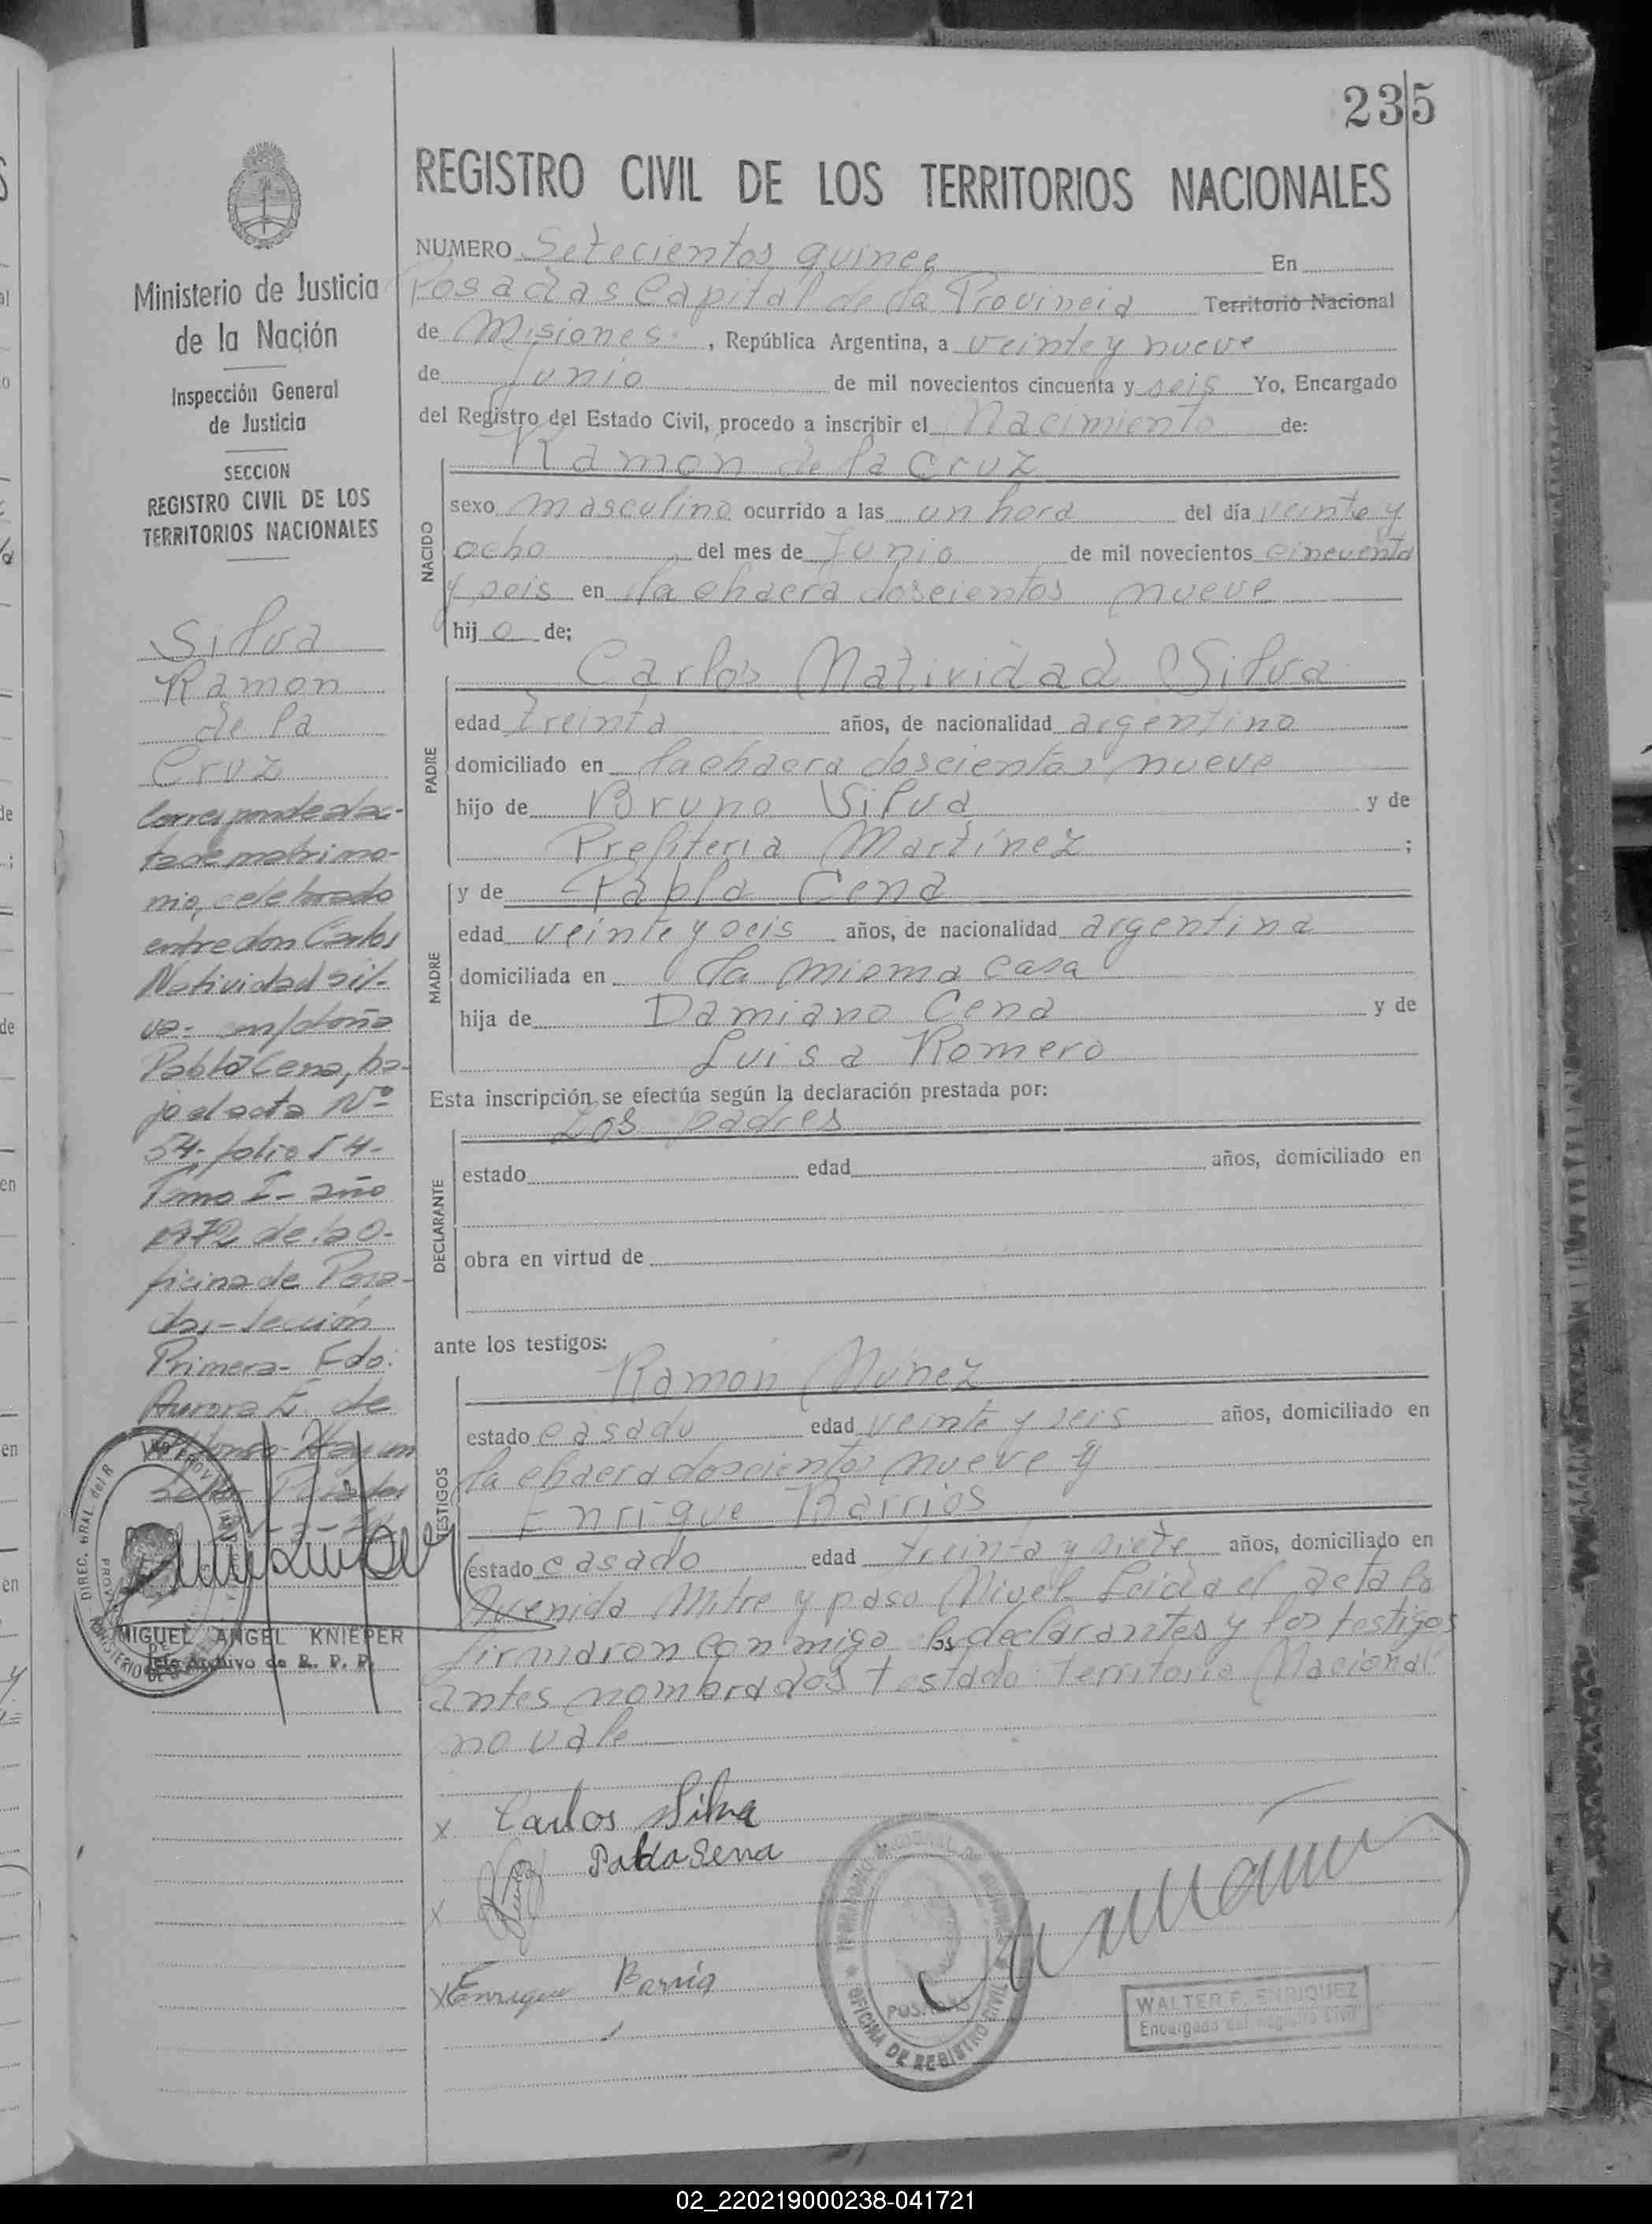 235
REGISTRO CIVIL DE LOS TERRITORIOS NACIONALES
Ministerio de Justicia
de la Nación
Inspección General
de Justicia
SECCION
REGISTRO CIVIL DE LOS
TERRITORIOS NACIONALES
Silva
Ramon
de la
Cruz
Corresponde al ac-
ta de matrimo-
nio, celebrado
entre don Carlos
Natividad Sil-
va- con doña
Pabla Cena, ba-
jo el acta Nº
54- folio 54-
Tomo I- año
1972 de la O-
ficina de Posa-
das- Sección
Primera- Fdo:
Aurora E. de
MIGUEL ANGEL KNIEPER
Jefe Archivo de R. P. P.
NUMERO Setecientos quince En
Posadas Capital de la Provincia Territorio Nacional
de Misiones. , República Argentina, a veinte y nueve
de Junio de mil novecientos cincuenta y seis Yo, Encargado
del Registro del Estado Civil, procedo a inscribir el Nacimiento de:
NACIDO
Ramon de la Cruz
sexo masculino ocurrido a las un hora del día veinte y
ocho del mes de Junio de mil novecientos cincuenta
y seis en la chacra doscientos nueve
hijo de;
PADRE
Carlos Natividad Silva
edad treinta años, de nacionalidad argentino
domiciliado en la chacra doscientos nueve
hijo de Bruno Silva y de
Prefiteria Martínez ;
MADRE
y de Pabla Cena
edad veinte y seis años, de nacionalidad argentina
domiciliada en la misma casa
hija de Damiano Cena y de
Luisa Romero
Esta inscripción se efectúa según la declaración prestada por:
DECLARANTE
Los padres
estado edad años, domiciliado en
obra en virtud de
ante los testigos:
TESTIGOS
Ramon Nuñez
estado casado edad veinte y seis años, domiciliado en
la chacra doscientos nueve y
Enrique Barrios
estado casado edad treinta y siete años, domiciliado en
Avenida Mitre y paso Nivel Leida el acta la
firmaron conmigo los declarantes y los testigos
antes nombrados testado territorio Nacional
no vale
x Carlos Silva
Pabla Sena
x
x Enrique Barrio
OFICINA DE REGISTRO CIVIL
POSADAS
WALTER F. ENRIQUEZ
Encargado del Registro Civil
02_220219000238-041721